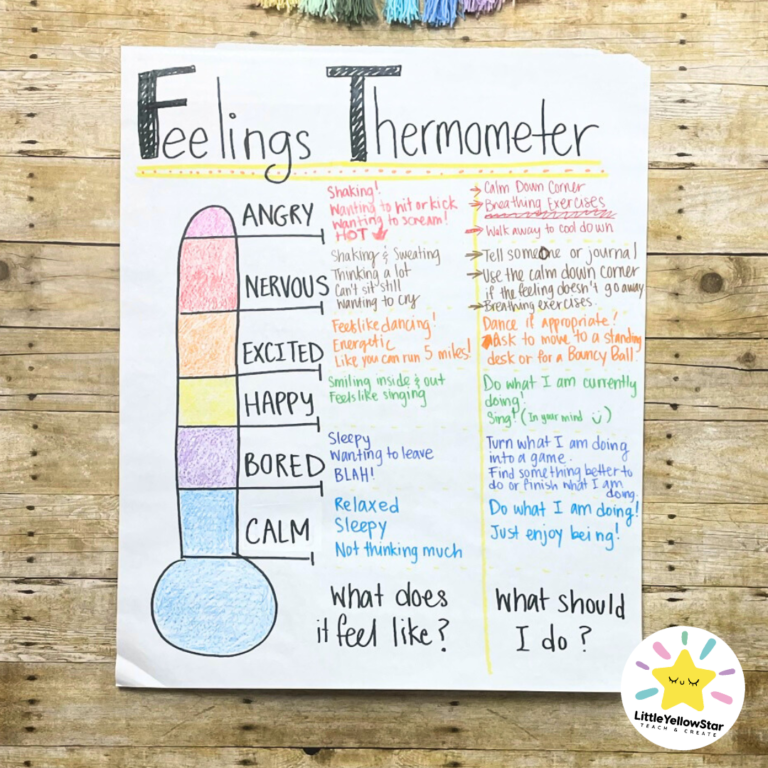 Feelings Thermometer
ANGRY
Shaking!
Wanting to hit or kick
Wanting to scream!
HOT
→ Calm Down Corner
→ Breathing Exercises
→ Walk away to cool down
NERVOUS
Shaking & Sweating
Thinking a lot
Can't sit still
Wanting to cry
→ Tell someone or journal
→ Use the calm down corner
if the feeling doesn't go away
→ Breathing exercises.
EXCITED
Feels like dancing!
Energetic
Like you can run 5 miles!
Dance if appropriate!
Ask to move to a standing
desk or for a Bouncy Ball
HAPPY
Smiling inside & out
Feels like singing
Do what I am currently
doing!
Sing! (In your mind)
BORED
Sleepy
Wanting to leave
BLAH!
Turn what I am doing
into a game.
Find something better to
do or finish what I am
doing.
CALM
Relaxed
Sleepy
Not thinking much
Do what I am doing!
Just enjoy being!
What does
it feel like?
What should
I do?
LittleYellowStar
TEACH & CREATE